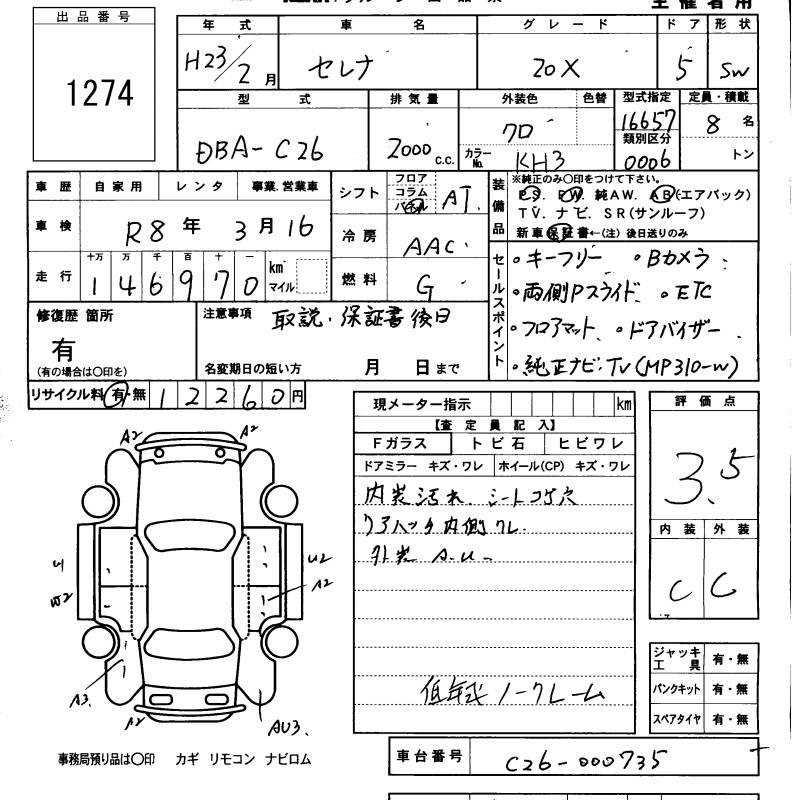 主催者用
出品番号
1274
年式 車名 グレード ドア 形状
H23/2月 セレナ 20X 5 SW
型式 排気量 外装色 色替 型式指定 定員・積載
DBA-C26 2000 c.c. クロ 16657 8名
類別区分
カラーNo. KH3 0006 トン
車歴 自家用 レンタ 事業.営業車
シフト フロア コラム パネル AT
装備品
※純正のみ〇印をつけて下さい。
PS. PW. 純AW. AB(エアバック)
TV. ナビ. SR(サンルーフ)
新車保証書←(注) 後日送りのみ
車検 R8年3月16
冷房 AAC
走行 十万 万 千 百 十 一
146970 km マイル
燃料 G
セールスポイント
・キーフリー ・Bカメラ
・両側Pスライド ・ETC
・フロアマット ・ドアバイザー
・純正ナビ・TV(MP310-W)
修復歴 箇所
有
(有の場合は〇印を)
注意事項 取説・保証書後日
名変期日の短い方 月 日まで
リサイクル料 有・無 12260円
現メーター指示 km
【査定員記入】
Fガラス トビ石 ヒビワレ
ドアミラー キズ・ワレ ホイール(CP) キズ・ワレ
内装汚れ シートコゲ穴
リアハッチ内側ワレ
外装 A.U
低年式ノークレーム
評価点
3.5
内装 外装
C C
ジャッキ工具 有・無
パンクキット 有・無
スペアタイヤ 有・無
A2 A2
U1 U2
W2 A2
A3 A2 AU3
事務局預り品は〇印 カギ リモコン ナビロム
車台番号 C26-000735